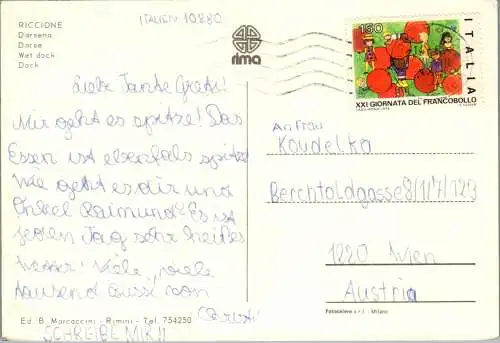 RICCIONE
Darsena
Darse
Wet dock
Dock
ITALIEN 10880
rima
150
ITALIA
XXI GIORNATA DEL FRANCOBOLLO
Liebe Tante Gretl!
Mir geht es spitze! Das
Essen ist ebenfals spitze!
Wie geht es dir und
Onkel Raimund? Es ist
jeden Tag sehr heißes
Viele, viele
tausend Bussi von
SCHREIBE MIR!!
An Frau
Koudelka
Berchtoldgasse 8/1/7/123
1220 Wien
Austria
Ed. B. Marcaccini - Rimini - Tel. 754250
Fotocolore s.r.l. - Milano